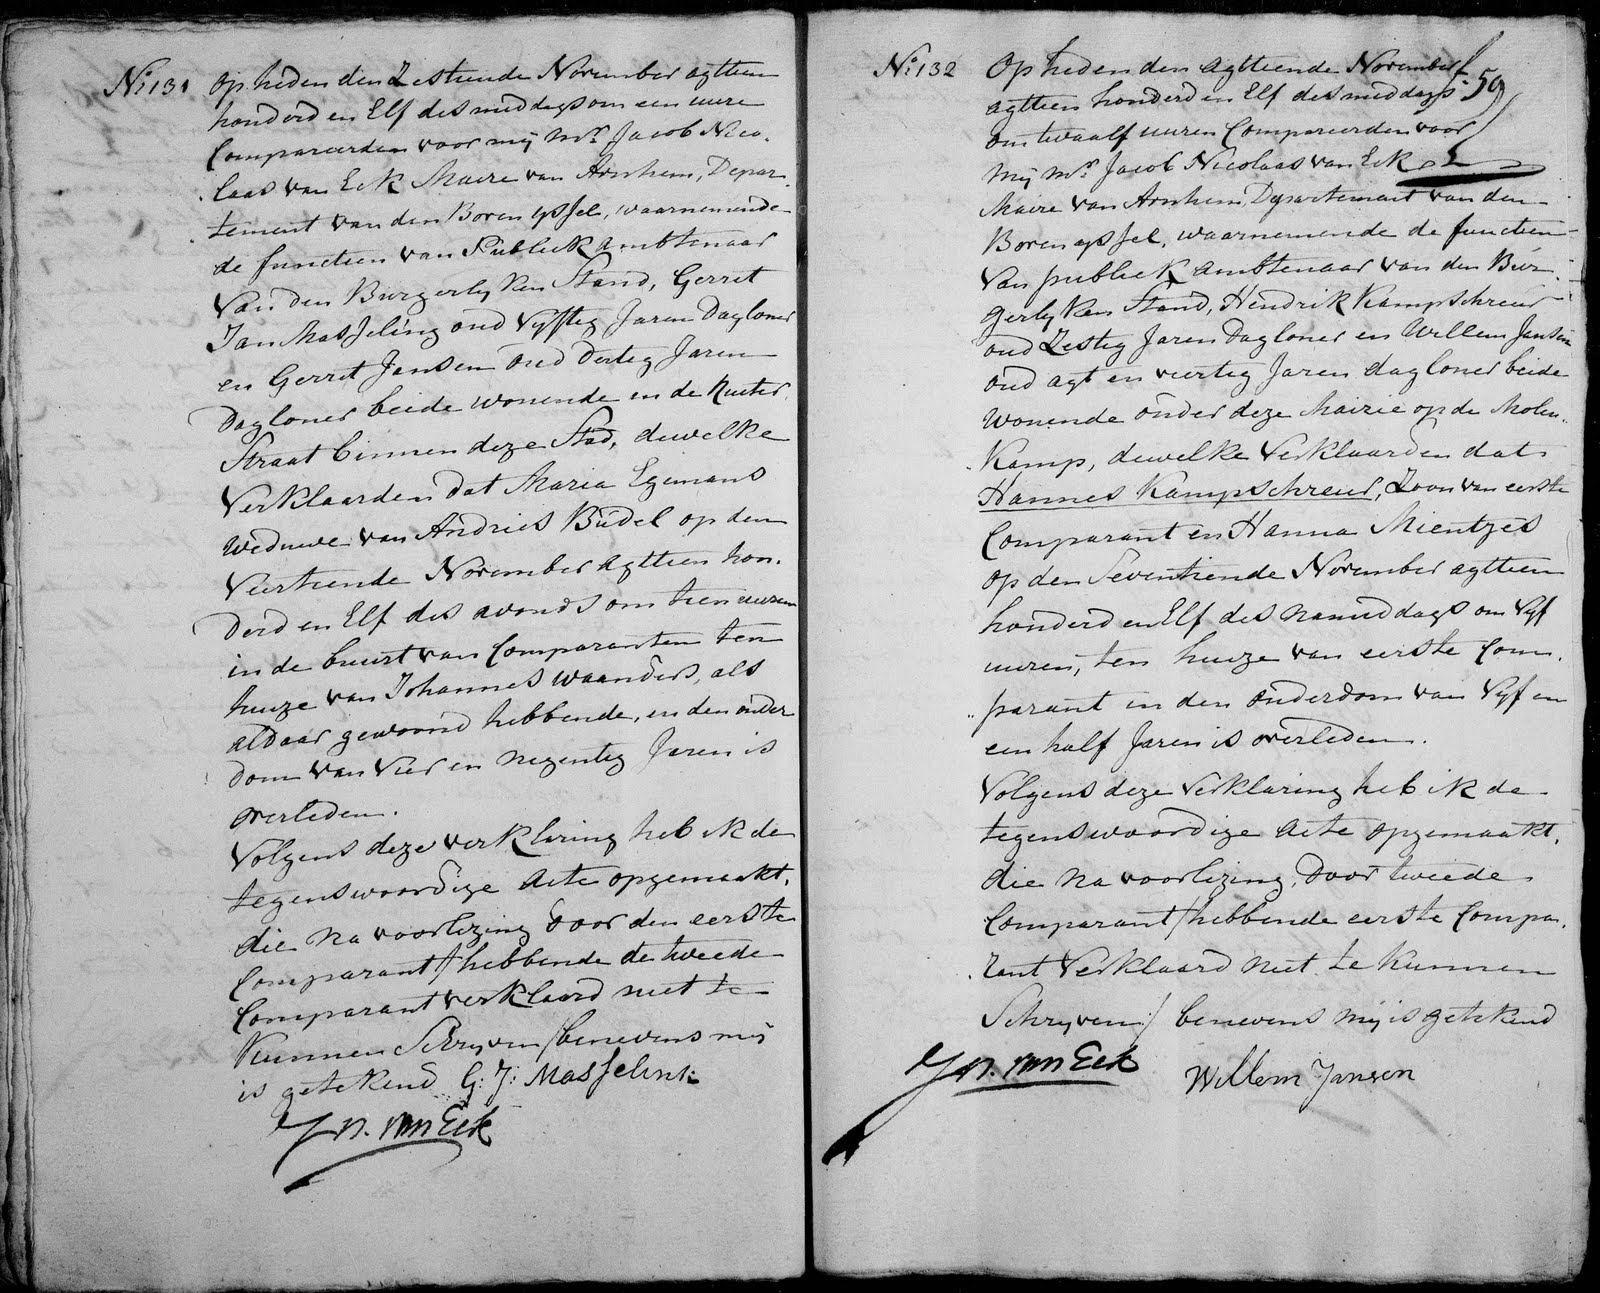 No: 131
op heden den Zestiende November agttien
honderd en Elf des middags om een uure
Compareerden voor mij Mr. Jacob Nico-
laas van Eck Maire van Arnhem, Depar-
tement van den Boven yssel, waarnemende
de functien van Publiek ambtenaar
van den Burgerlyken Stand, Gerrit
Jan Masseling oud vyftig Jaren Dagloner
en Gerret Jansen oud dertig Jaren
Dagloner beide wonende in de
Straat binnen deze Stad, dewelke
verklaarden dat Maria Egimans
Weduwe van Andries Budel op den
Veertiende November agttien hon-
derd en Elf des avonds om tien uuren
in de buurt van Comparanten ten
huize van Johannes Waanders, als
aldaar gewoond hebbende, in den ouder
dom van vier en negentig Jaren is
overleden.
Volgens deze verklaring heb ik de
tegenswoordige acte opgemaakt,
die na voorlezing door den eerste
Comparant /hebbende de tweede
Comparant verklaard niet te
kunnen Schryven/ benevens mij
is getekend G: J: Masselink
J N. van Eck
No: 132
Op heden den agttiende November
f 59
agttien honderd en Elf des middags
om twaalf uuren Compareerden voor
Mij Mr. Jacob Nicolaas van Eck
Maire van Arnhem, Departement van den
Boven yssel, waarnemende de functien
van publiek ambtenaar van den Bur-
gerlyken Stand, Hendrik Kampschreur
oud Zestig Jaren Dagloner en Willem Jansen
oud agt en viertig Jaren dagloner beide
wonende onder deze Mairie op de Molen-
Kamp, dewelke verklaarden dat
Hannes Kampschreur, Zoon van eerste
Comparant en Hanna Mientzes
op den Seventiende November agttien
honderd en Elf des namiddags om vyf
uuren, ten huize van eerste Com-
parant in den ouderdom van vyf en
een half Jaren is overleden.
Volgens deze verklaring heb ik de
tegenswoordige acte opgemaakt,
die na voorlezing, door tweede
Comparant /hebbende eerste Compa-
rant verklaard niet te kunnen
Schryven/ benevens mij is getekend
J N. van Eck
Willem Jansen